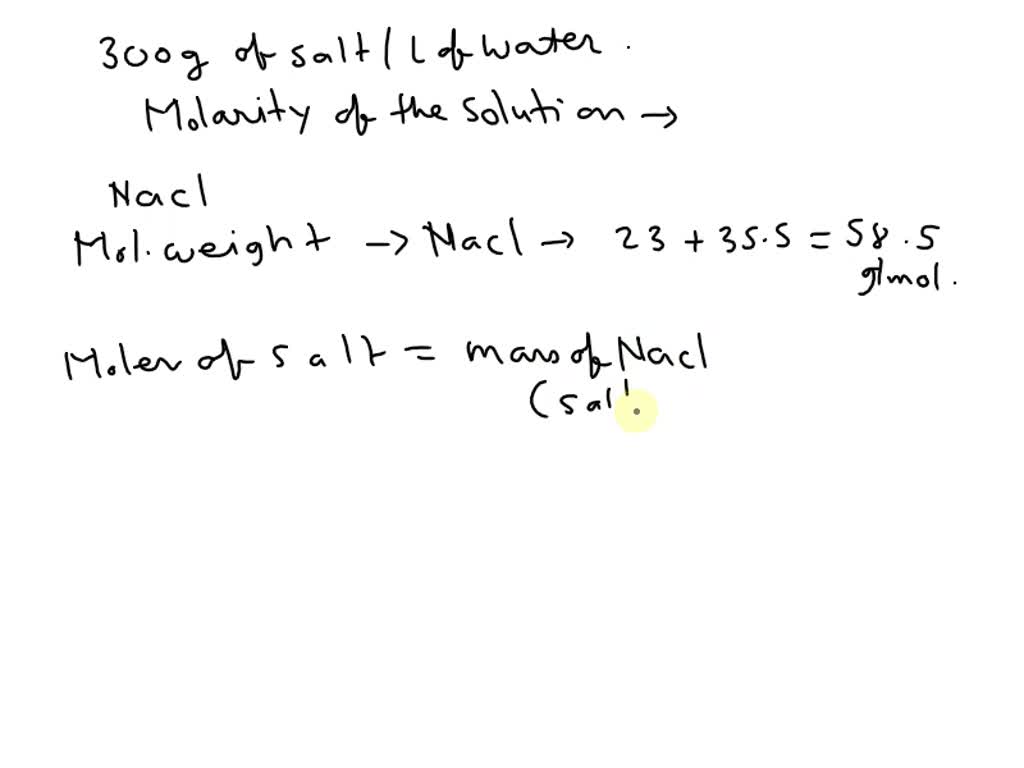 300g of salt/L of water.
Molarity of the solution →
Nacl
Mol. weight → Nacl → 23 + 35.5 = 58.5
g/mol.
Moles of salt = mass of Nacl
(salt